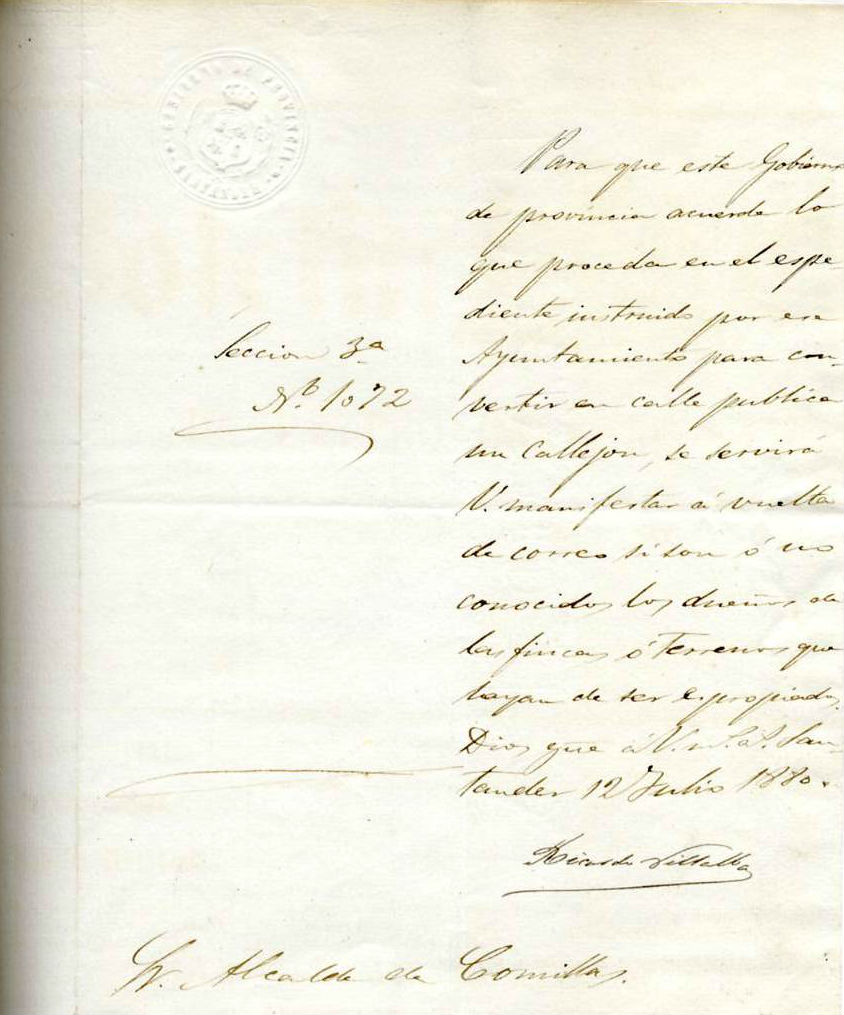 GOBIERNO DE PROVINCIA
SANTANDER
Seccion 3ª
Nº 1072
Para que este Gobierno
de provincia acuerde lo
que proceda en el espe-
diente instruido por ese
Ayuntamiento para con-
vertir en calle publica
un callejon, se servirá
V. manifestar á vuelta
de correo si son ó no
conocidos los dueños de
las fincas ó terrenos que
hayan de ser espropiados.
Dios gue á V. m.s a.s San-
tander 12 Julio 1880.
Ricardo Villalba
Sr. Alcalde de Comillas.